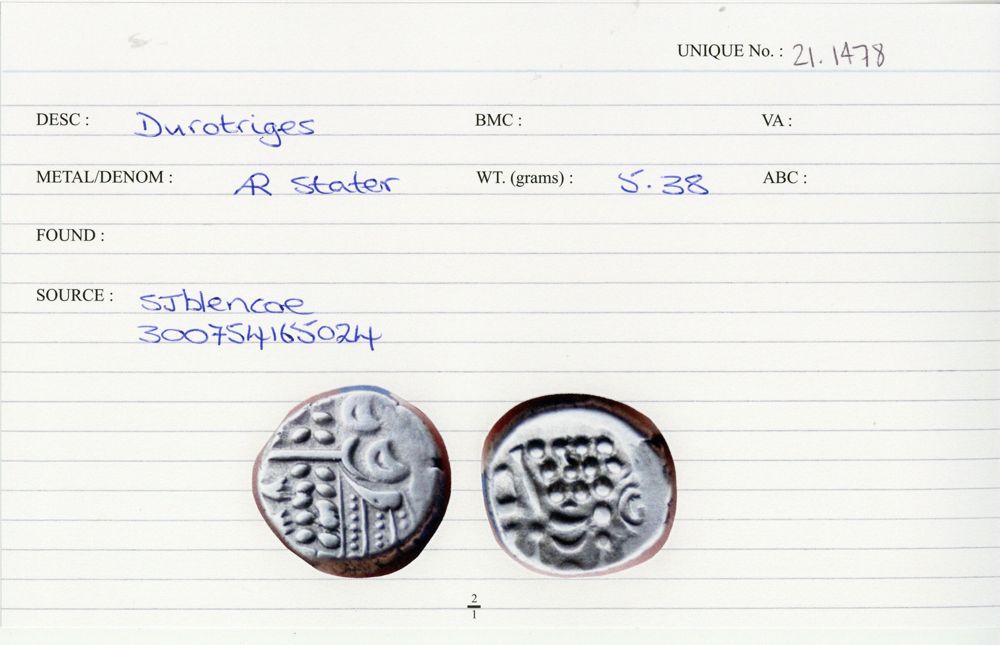 UNIQUE No. : 21.1478
DESC : Durotriges BMC : VA :
METAL/DENOM : AR Stater WT. (grams) : 5.38 ABC :
FOUND :
SOURCE : SJblencoe
300754165024
2
1